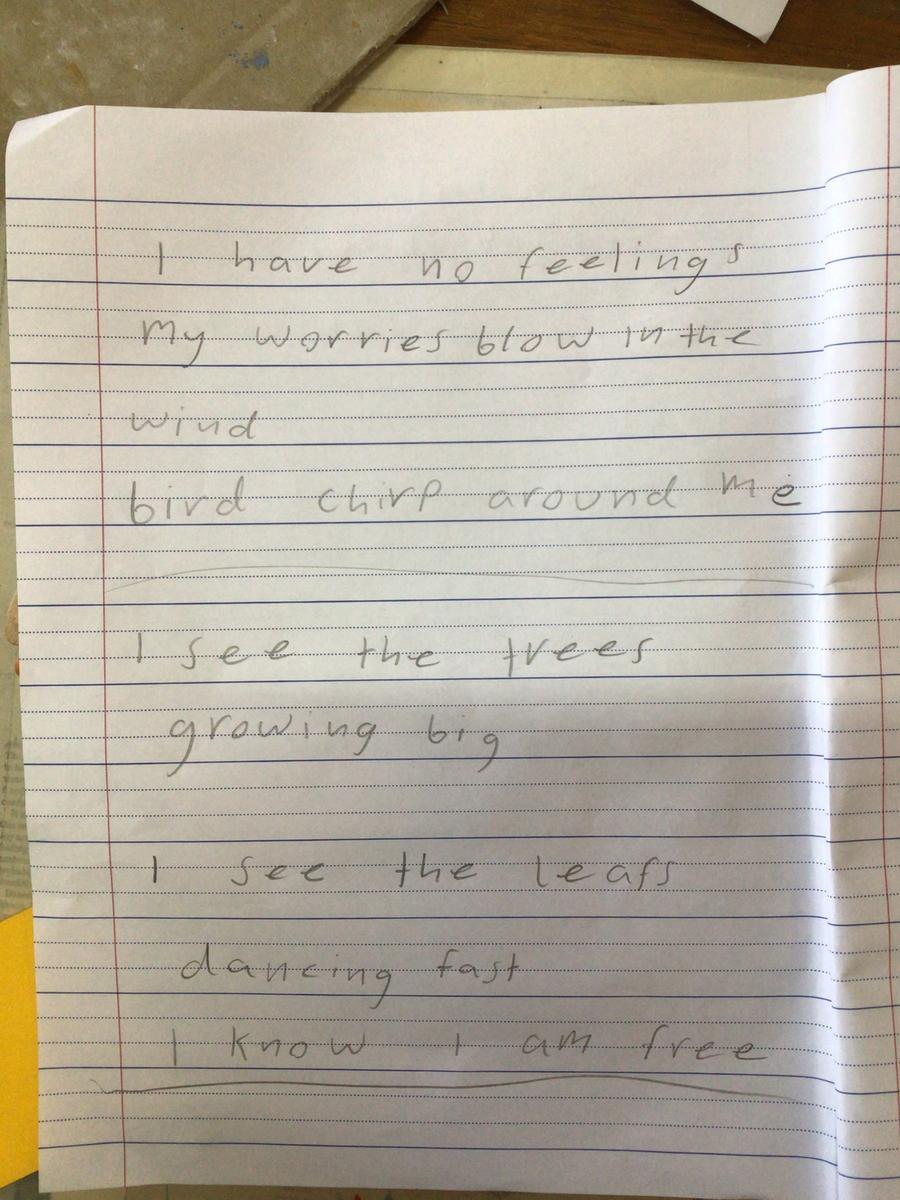 I have no feelings
My worries blow in the
wind
bird chirp around me
I see the trees
growing big
I see the leafs
dancing fast
I know I am free